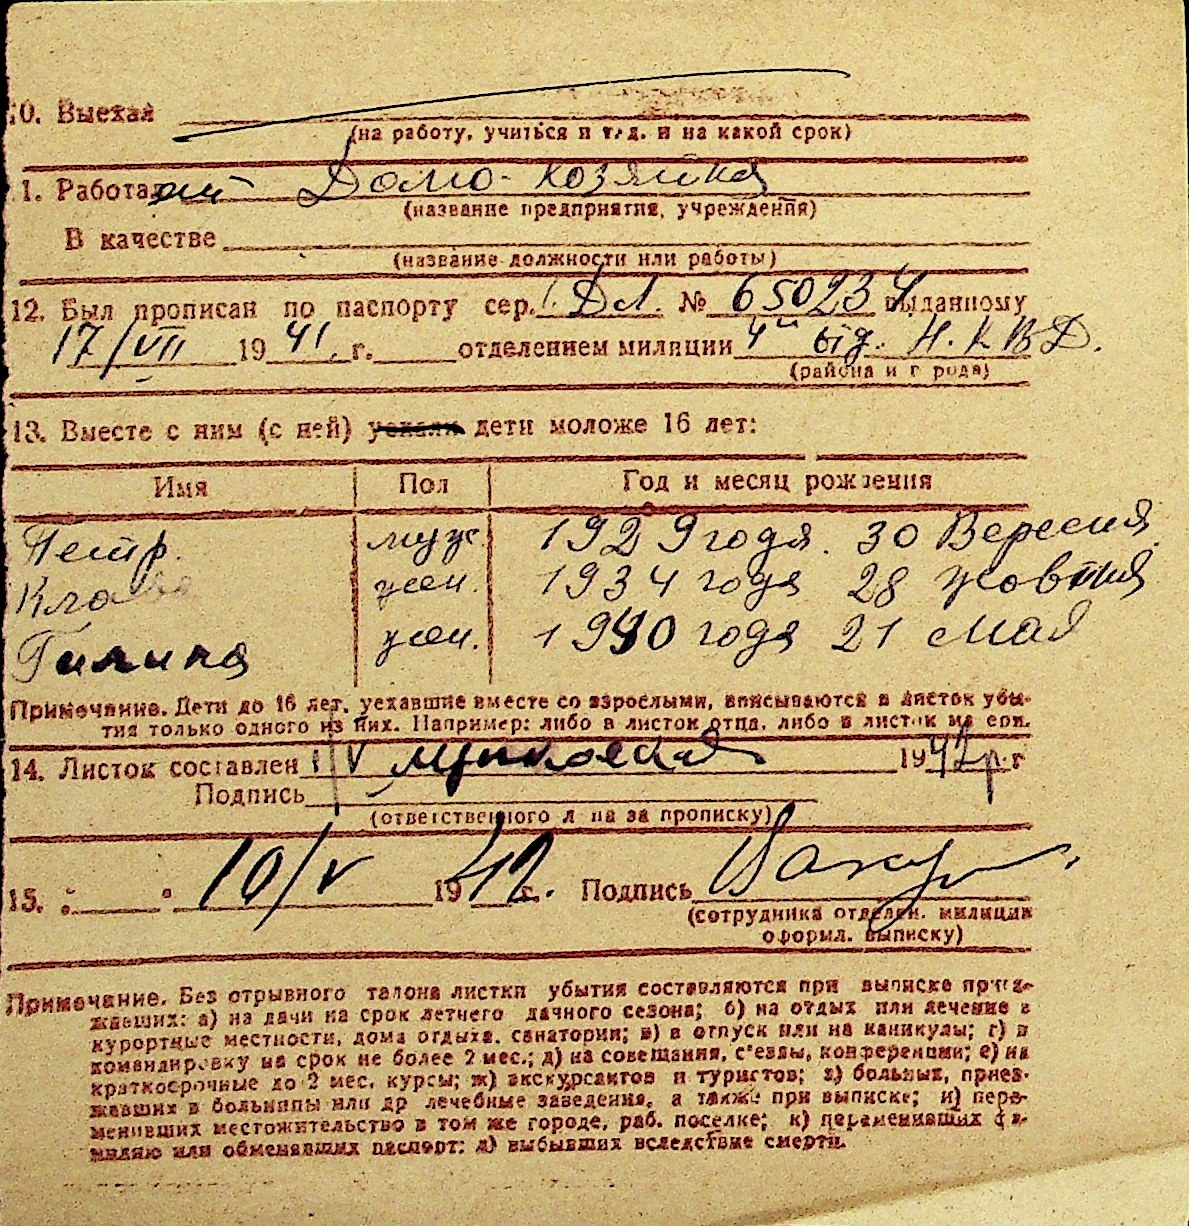 10. Выехал
(на работу, учиться и т. д. и на какой срок)
1. Работа Домо-хозяйка
(название предприятия, учреждения)
В качестве
(название должности или работы)
12. Был прописан по паспорту сер. ДЛ. № 650234 выданному
17/VII 1941 г. отделением милиции 4 від. Н.К.В.Д.
(района и города)
13. Вместе с ним (с ней) уехали дети моложе 16 лет:
Имя Пол Год и месяц рождения
Петр. муж. 1929 года. 30 Вересня.
Клава жен. 1934 года 28 жовтня
Галина жен. 1940 года 21 мая
Примечание. Дети до 16 лет, уехавшие вместе со взрослыми, вписываются в листок убы-
тия только одного из них. Например: либо в листок отца, либо в листок матери.
14. Листок составлен V 1942 р. г
Подпись
(ответственного лица за прописку)
15. " " 10/V 1942 г. Подпись
(сотрудника отделен. милиции
оформл. выписку)
Примечание. Без отрывного талона листки убытия составляются при выписке приез-
жавших: а) на дачи на срок летнего дачного сезона; б) на отдых или лечение в
курортные местности, дома отдыха, санатории; в) в отпуск или на каникулы; г) в
командировку на срок не более 2 мес.; д) на совещания, с'езды, конференции; е) на
краткосрочные до 2 мес. курсы; ж) экскурсантов и туристов; з) больных, приез-
жавших в больницы или др лечебные заведения, а также при выписке; и) пере-
менивших местожительство в том же городе, раб. поселке; к) переменивших фа-
милию или обменявших паспорт; л) выбывших вследствие смерти.